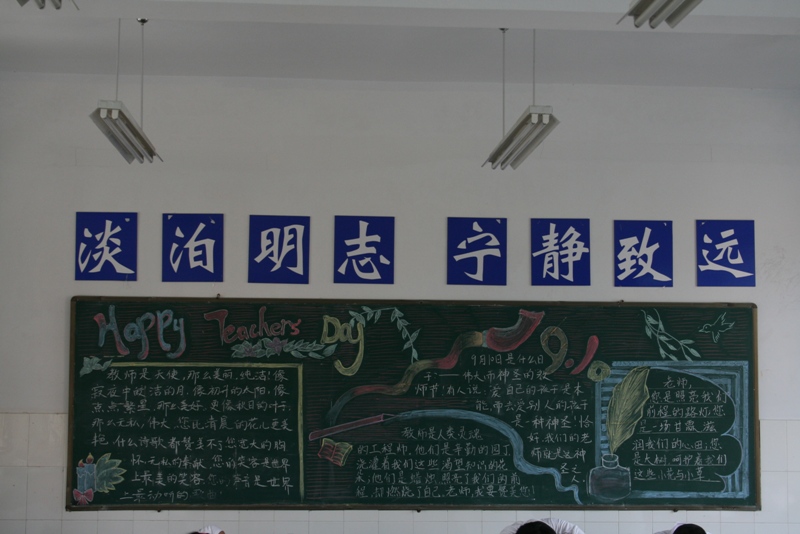 淡泊明志 宁静致远
Happy Teachers Day
9.10
教师是天使,那么美丽,纯洁!像
寂夜中皎洁的月,像初升的太阳;像
点点繁星,那么美好。更像秋日的叶子,
那么无私,伟大。您比清晨的花儿更美
艳。什么诗歌都赞美不了您宽大的胸
怀,无私的奉献。您的笑容是世界
上最美的笑容,您的声音是世界
上最动听的
9月10日是什么日
子?——伟大而神圣的教
师节!有人说,爱自己的孩子是本
能,而去爱别人的孩子
是一种神圣!恰
好我们的老
师就是这种
圣之
人
教师是人类灵魂
的工程师,他们是辛勤的园丁
浇灌着我们这些渴望知识的花
朵;他们是蜡烛,照亮了我们的前
程,却燃烧了自己。老师,我要赞美您!
老师,
您是照亮我们
前程的路灯;您
是一场甘露,滋
润我们的心田;您
是大树,呵护着我们
这些小花与小草。